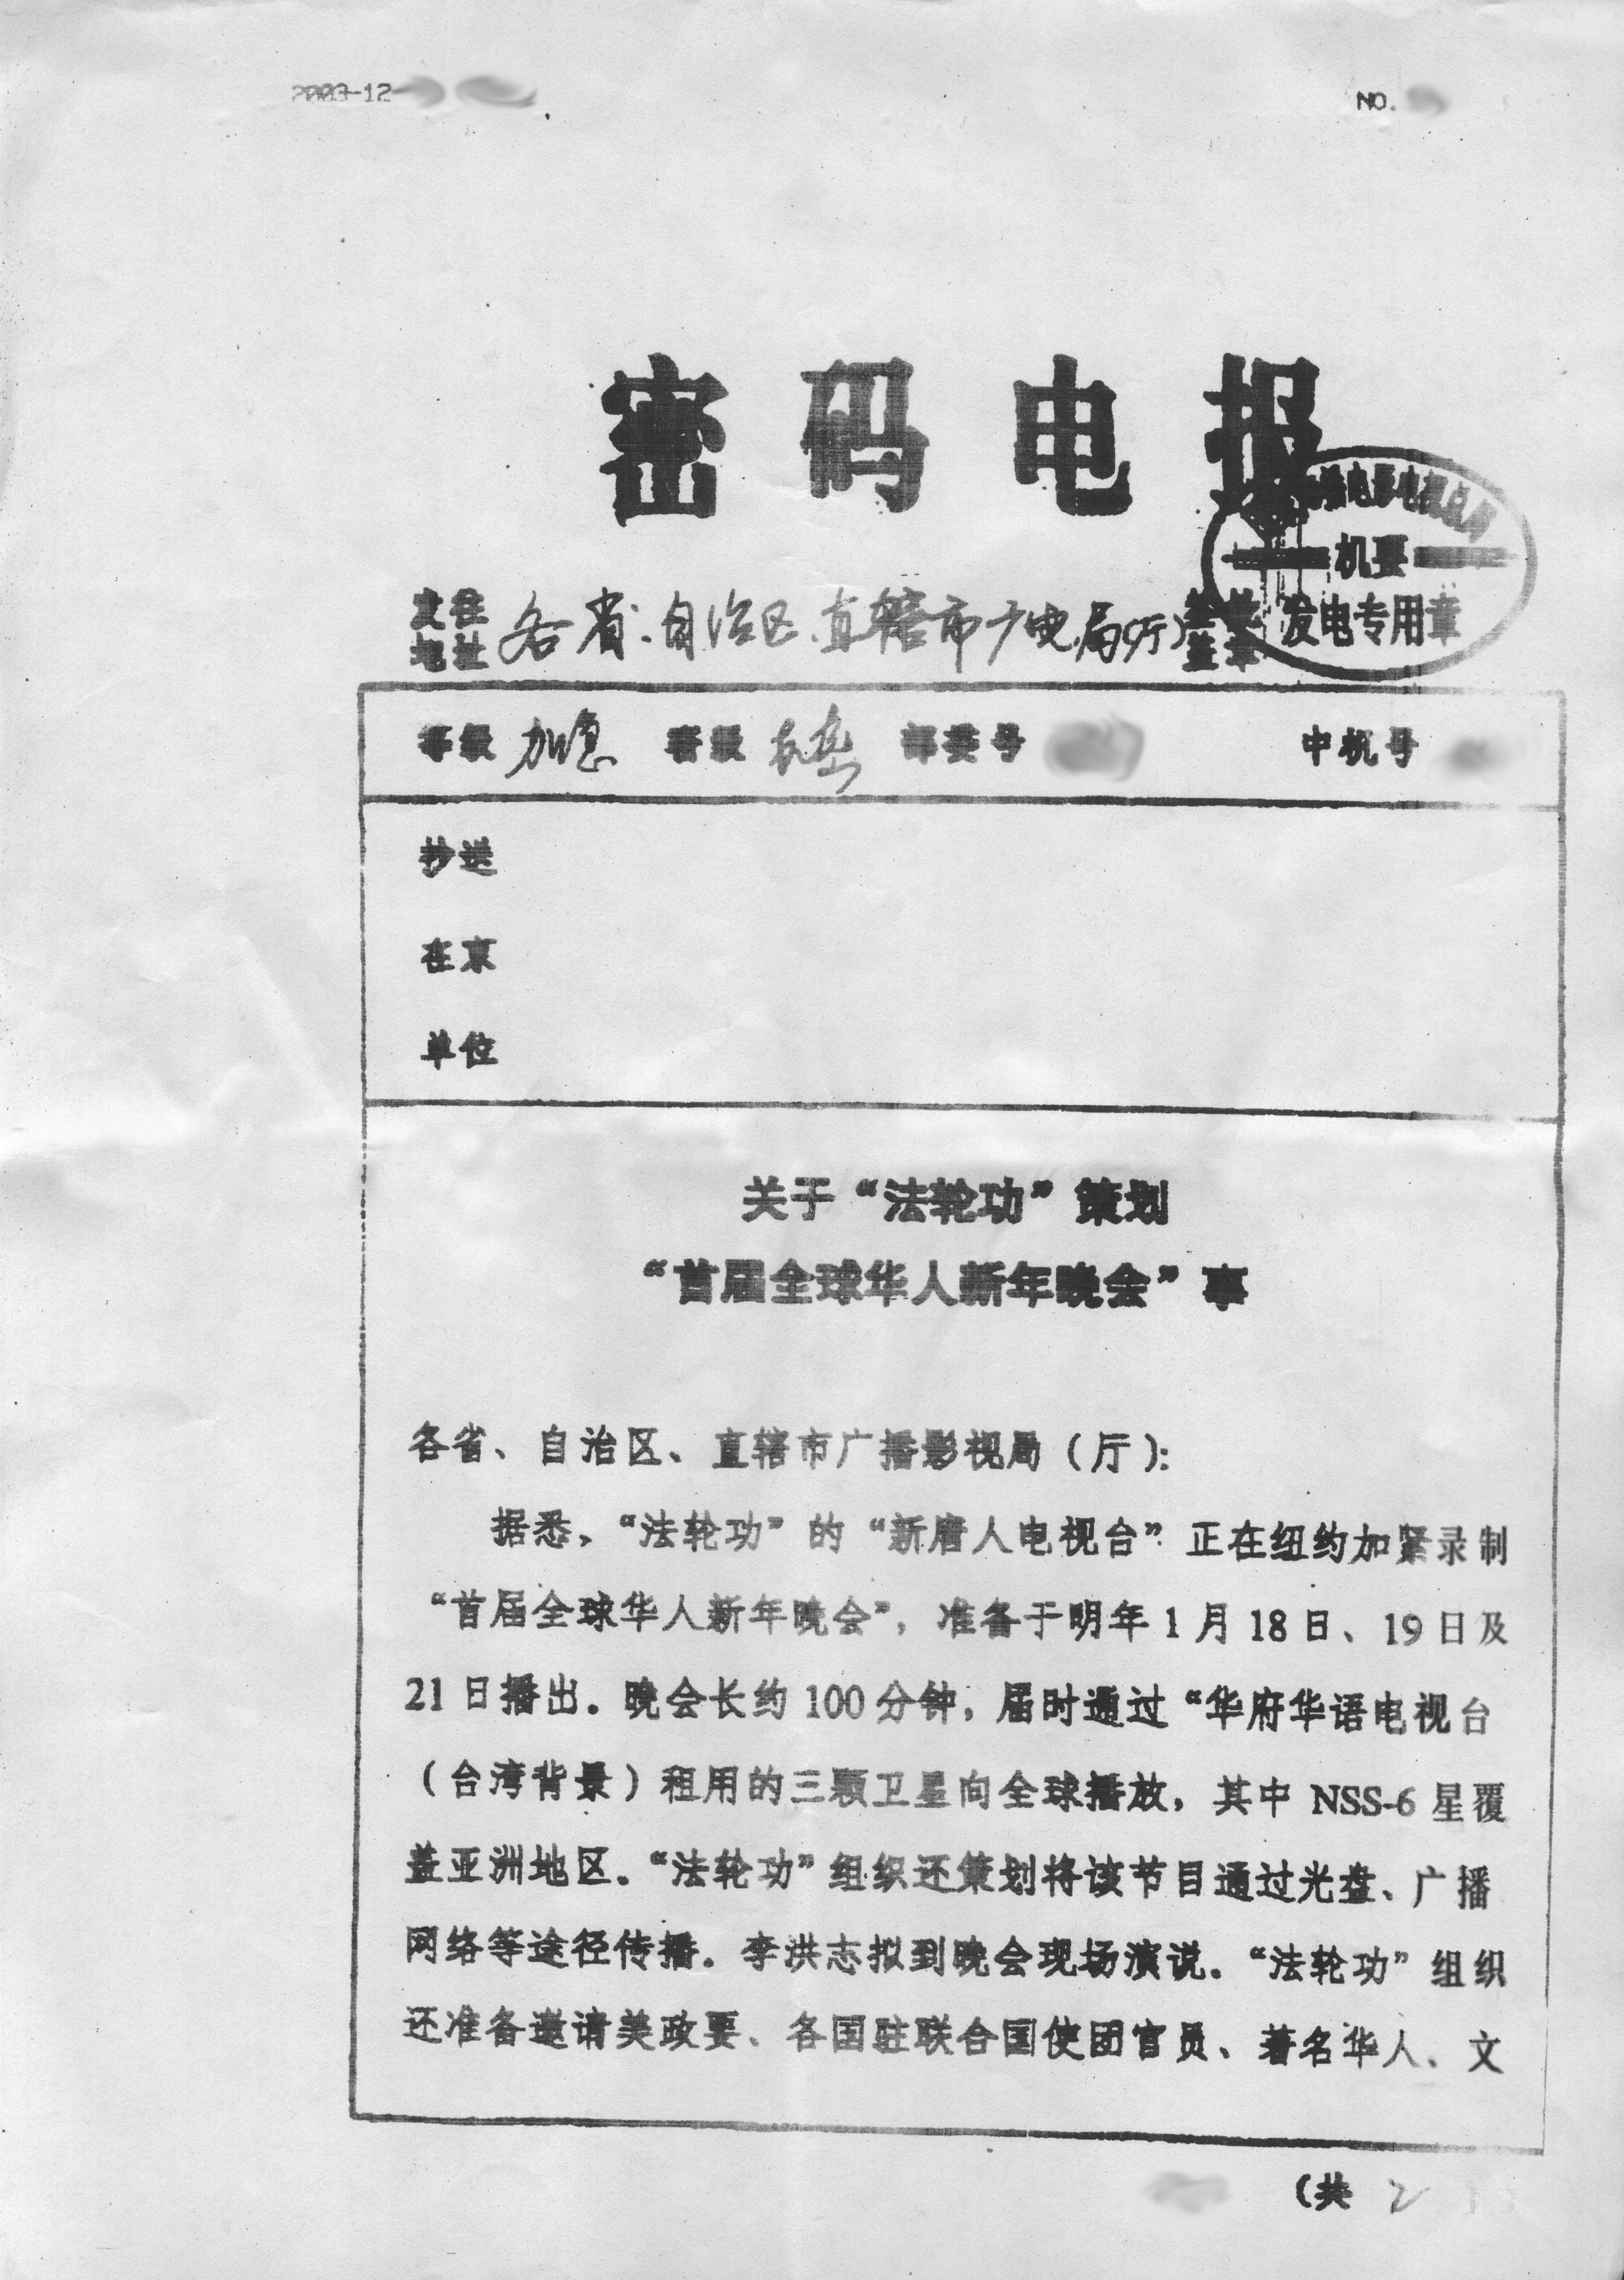 2003-12
NO.
密码电报
播电影电视总局
机要
发电专用章
发往
地址
各省.自治区.直辖市广电局(厅)
签批
盖章
等级 加急 密级 机密 部委号 中机号
抄送
在京
单位
关于“法轮功”策划
“首届全球华人新年晚会”事
各省、自治区、直辖市广播影视局(厅):
据悉,“法轮功”的“新唐人电视台”正在纽约加紧录制
“首届全球华人新年晚会”,准备于明年1月18日、19日及
21日播出。晚会长约100分钟,届时通过“华府华语电视台
(台湾背景)租用的三颗卫星向全球播放,其中NSS-6星覆
盖亚洲地区。“法轮功”组织还策划将该节目通过光盘、广播
网络等途径传播。李洪志拟到晚会现场演说。“法轮功”组织
还准备邀请美政要、各国驻联合国使团官员、著名华人、文
(共 2